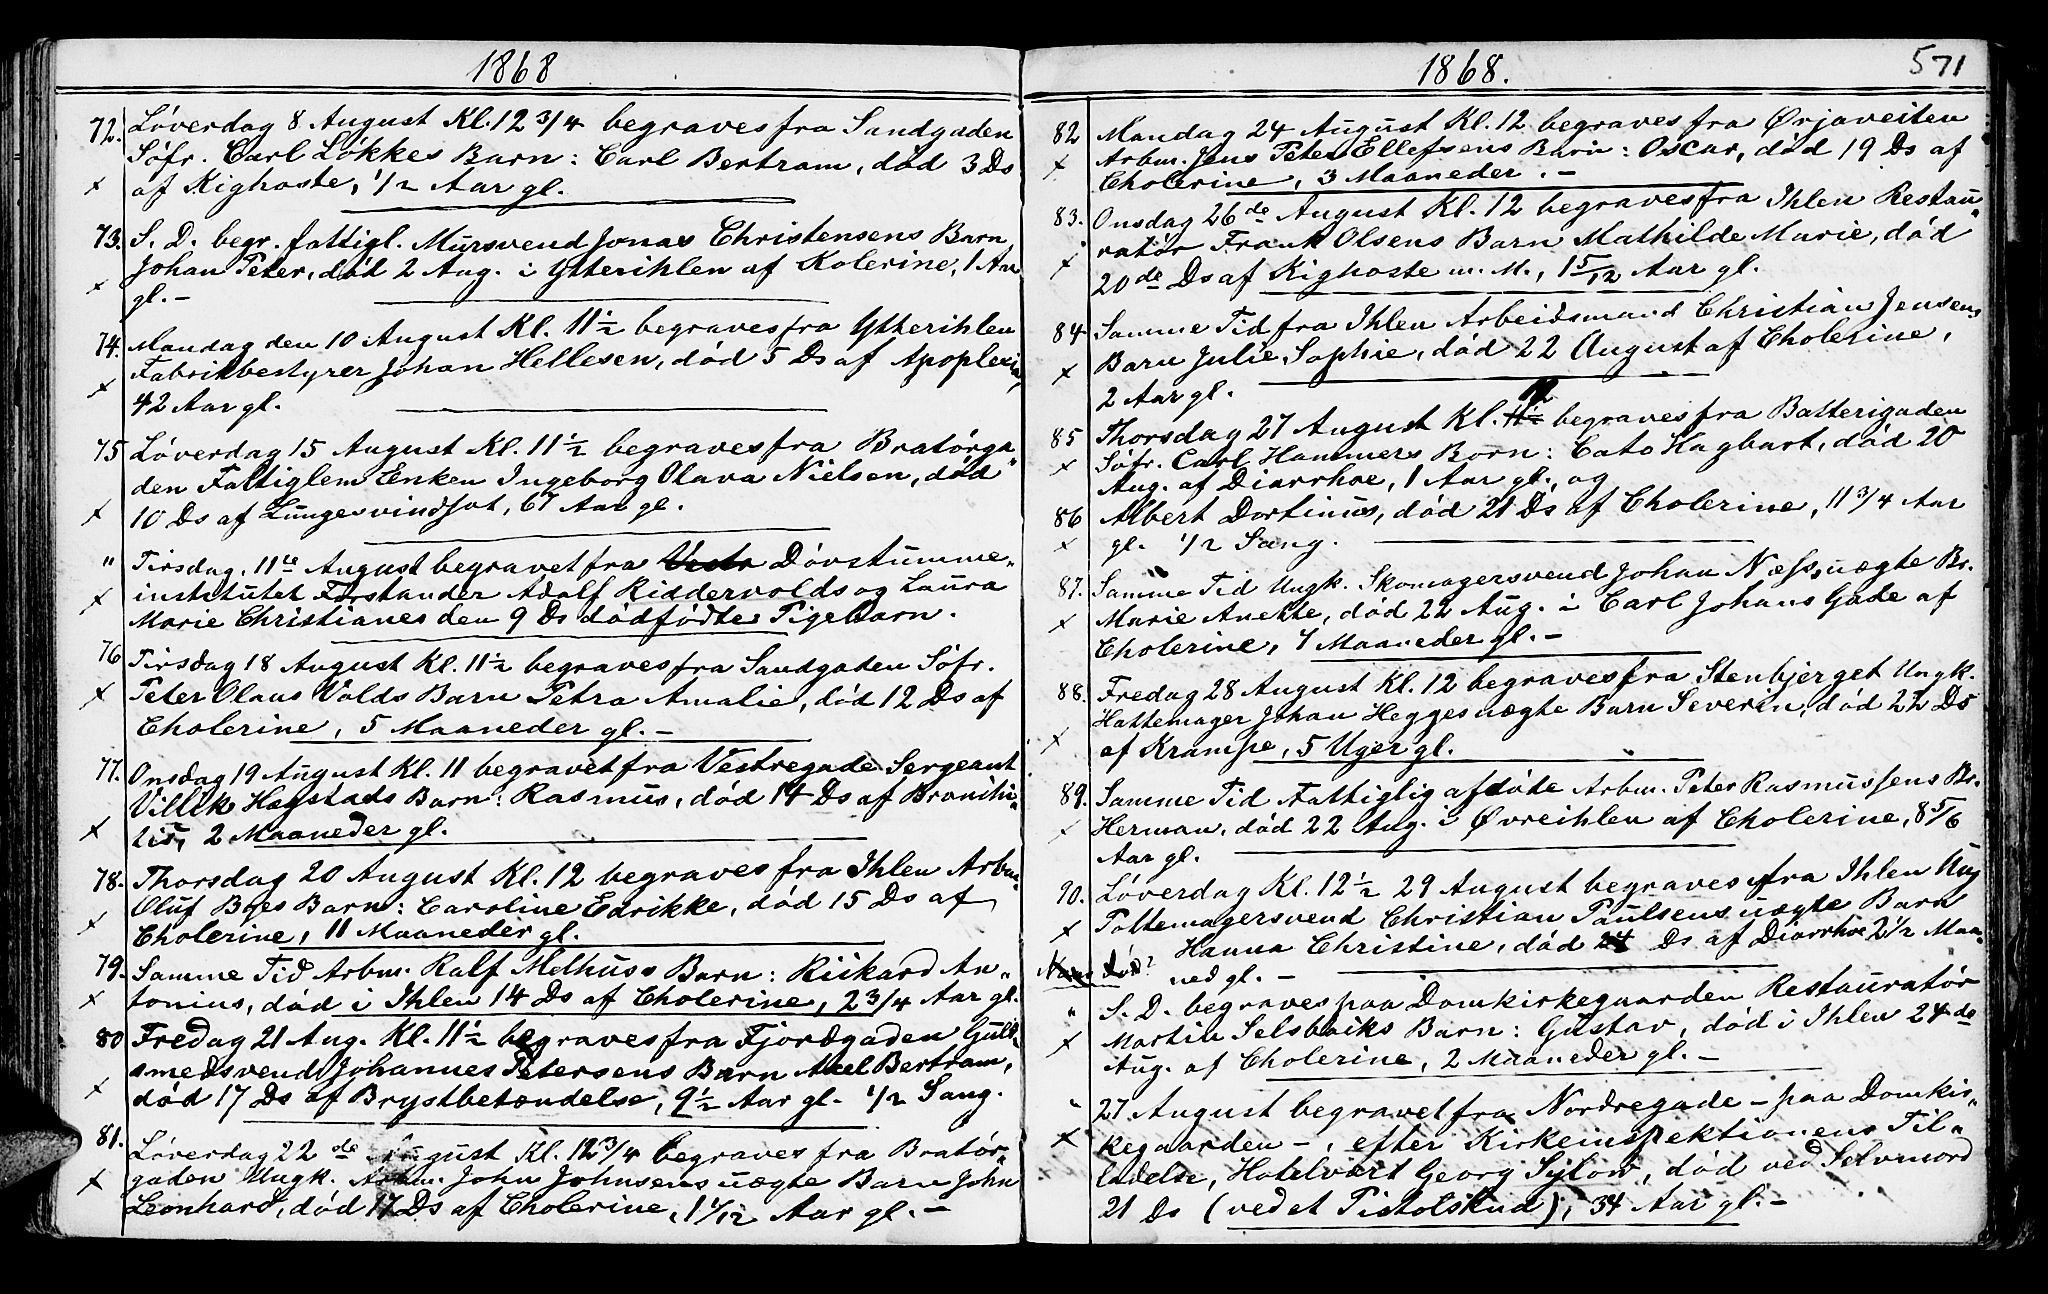 1868
72. Löverdag 8 August Kl. 12 3/4 begraves fra Sandgaden
Söfr. Carl Lökkes Barn: Carl Bertram, död 3 Ds
x af Kighoste, 1/2 Aar gl.
73. S. D. begr. fattigl. Mursvend Jonas Christensens Barn
Johan Peter, död 2 Aug. i Ytterihlen af Kolerine, 1 Aar
x gl. -
74. Mandag den 10 August Kl. 11 1/2 begraves fra Ytterihlen
Fabrikbestyrer Johan Hellesen, död 5 Ds af Apoplexie,
x 42 Aar gl.
75 Löverdag 15 August Kl. 11 1/2 begraves fra Bratörga„
den Fattiglem Enken Ingeborg Olava Nielsen, död
x 10 Ds af Lungesvindsot, 67 Aar gl.
„ Tirsdag, 11te August begravet fra Dövstumme„
x institutet Forstander Adolf Riddervolds og Laura
Marie Christianes den 9 Ds dödfödte Pigebarn.
76 Tirsdag 18 August Kl. 11 1/2 begraves fra Sandgaden Söfr.
x Peter Olaus Volds Barn Petra Amalie, död 12 Ds af
Cholerine, 5 Maaneder gl. -
77. Onsdag 19 August Kl. 11 begravet fra Vestregade Sergeant
Villik Hegstads Barn: Rasmus, död 14 Ds af Bronchi„
x tis, 2 Maaneder gl.
78. Thorsdag 20 August Kl. 12 begraves fra Ihlen Arbm.
x Oluf Boes Barn: Caroline Edrikke, död 15 Ds af
Cholerine, 11 Maaneder gl.
79. Samme Tid Arbm. Ralf Melhuss Barn: Rikard An„
x tonius, död i Ihlen 14 Ds af Cholerine, 2 3/4 Aar gl.
80 Fredag 21 Aug. Kl. 11 1/2 begraves fra Fjordgaden Guld„
smedsvend Johannes Petersens Barn Axel Bertram,
x död 17 Ds af Brystbetændelse, 9 1/2 Aar gl. 1/2 Sang.
81. Löverdag 22de August Kl. 12 3/4 begraves fra Bratör„
x gaden Ungk. Arbm. John Johnsens uægte Barn John
Leonhard, död 17 Ds af Cholerine, 1 1/12 Aar gl. -
1868. 571
82 Mandag 24 August Kl. 12 begraves fra Ørjaveiten
x Arbm. Jens Peter Ellefsens Barn: Oscar, död 19 Ds af
Cholerine, 3 Maaneder. -
83. Onsdag 26de August Kl. 12 begraves fra Ihlen Restau„
x ratör Frank Olsens Barn Mathilde Marie, död
20de Ds af Kighoste m. M., 1 5/12 Aar gl.
84 Samme Tid fra Ihlen Arbeidsmand Christian Jensens
x Barn Julie Sophie, död 22 August af Cholerine,
2 Aar gl.
85 Thorsdag 27 August Kl. 12 begraves fra Batterigaden
x Söfr. Carl Hammers Born: Cato Hagbart, död 20
Aug. af Diarrhoe, 1 Aar gl., og
86 Albert Dortinius, död 21 Ds af Cholerine, 11 3/4 Aar
x gl. 1/2 Sang.
87. Samme Tid Ungk. Skomagersvend Johan Næss, uægte Br.
x Marie Anette, död 22 Aug. i Carl Johans Gade af
Cholerine, 4 Maaneder gl. -
88. Fredag 28 August Kl. 12 begraves fra Stenbjerget Ungk.
Hattemager Johan Hegges uægte Barn Severin, död 22 Ds
x af Krampe, 5 Uger gl.
89. Samme Tid Fattiglig afdöde Arbm. Peter Rasmussens Br.
x Herman, död 22 Aug. i Øvreihlen af Cholerine, 8 5/6
Aar gl.
90. Löverdag Kl. 12 1/2 29 August begraves fra Ihlen Ung
x Pottemagersvend Christian Paulsens uægte Barn
Hanna Christine, död 24 Ds af Diarrhoe 2 1/2 Maa„
ned gl. -
„ S. D. begraves paa Domkirkegaarden Restauratör
x Martin Selsbaks Barn: Gustav, död i Ihlen 24de
Aug. af Cholerine, 2 Maaneder gl. -
„ 27 August begravet fra Nordregade - paa Domkir„
x kegaarden -, efter Kirkeinspektionens Til„
ladelse, Hotelvært Georg Sylow, död ved Selvmord
21 Ds (ved et Pistolskud), 34 Aar gl. -